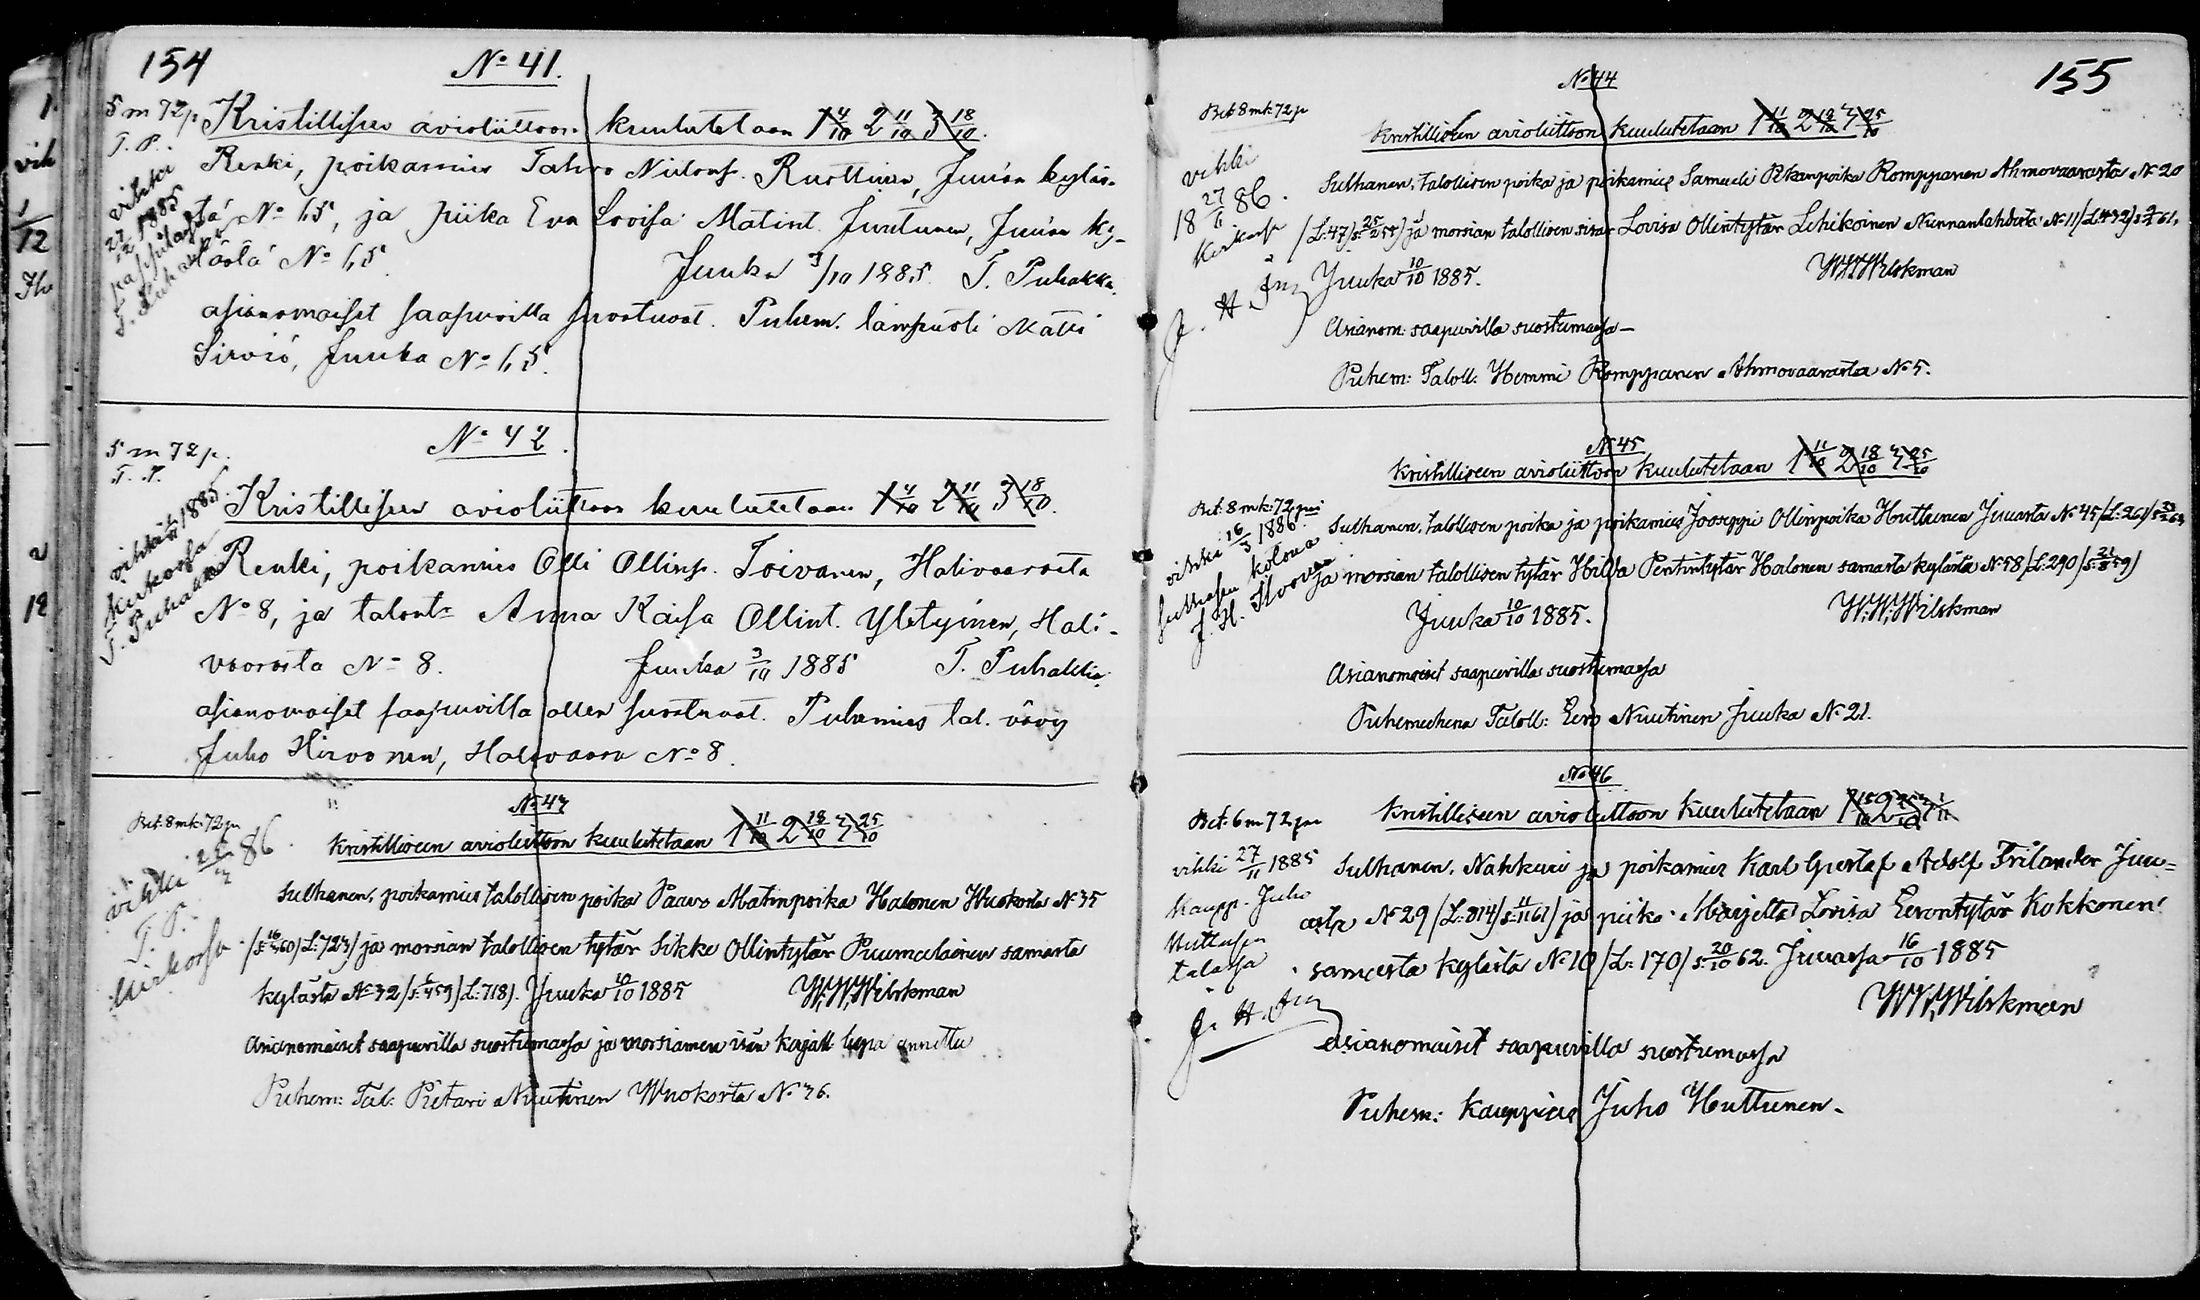 154
No 41.
5 m 72 p
T. P.
vihki
1885
pappilassa
Kristilliseen avioliittoon kuulutetaan 1 4/10 2 11/10 3 18/10.
Renki, poikamies Tahvo Niilonp. Ruottinen, Juuan kyläs-
tä No 65, ja piika Eva Lovisa Matint. Juntunen, Juuan ky-
lästä No 65.
Juuka 3/10 1885. T. Puhakka.
asianomaiset saapuvilla suostuvat. Puhem. lampuoti Matti
Sirviö, Juuka No 65.
No 42.
5 m 72 p.
T. P.
vihki 1885
kirkossa
T. Puhakka
Kristilliseen avioliittoon kuulutetaan 1 4/10 2 11/10 3 18/10.
Renki, poikamies Olli Ollinp. Toivanen, Halivaarasta
No 8, ja talont. Anna Kaisa Ollint. Yletyinen, Hali-
vaarasta No 8. Juuka 3/10 1885 T. Puhakka
asianomaiset saapuvilla ollen suostuvat. Puhemies tal. vävy
Juho Hirvonen, Halivaara No 8.
No 43
Bet. 8 mk: 72 pn
vihki 86
T. P.
kirkossa
kristilliseen avioliittoon kuulutetaan 1 11/10 2 18/10 3 25/10
Sulhanen, poikamies talollisen poika Paavo Matinpoika Halonen Wuokosta No 35
/s: 60/ L: 723/ ja morsian talollisen tytär Sikke Ollintytär Puumalainen samasta
kylästä No 32 /s: 59/ L: 718/. Juuka 10/10 1885 W.W.Wilskman
Asianomaiset saapuvilla suostumassa ja morsiamen isän kirjall. lupa annettu
Puhem: Tal: Pietari Nuutinen Wuokosta No 36.
155
No 44
Bet: 8 mk: 72 p
vihki
27/6
18 86.
kirkossa
kristilliseen avioliittoon kuulutetaan 1 11/10 2 18/10 3 25/10
Sulhanen, talollisen poika ja poikamies Samueli Pekanpoika Romppanen Ahmovaarasta No 20
/L: 47/ s: 25/2 55/ ja morsian talollisen sisar Lovisa Ollintytär Lehikoinen Nunnanlahdesta No 11 /L: 432/ 61.
Juuka 10/10 1885. W.W.Wilskman
Asianom: saapuvilla suostumassa—
Puhem: Taloll: Hemmi Romppanen Ahmovaarasta No 5.
No 45
kristilliseen avioliittoon kuulutetaan 1 11/10 2 18/10 3 25/10
Bet: 8 mk: 72 pni
vihki 16/3 1886.
sulhasen kotona
J. H.
Sulhanen, talollisen poika ja poikamies Jooseppi Ollinpoika Huttunen Juuasta No 45 /L: 261/
ja morsian talollisen tytär Hilda Pentintytär Halonen samasta kylästä No 58 /L: 290/ s: 59/
Juuka 10/10 1885. W.W.Wilskman
Asianomaiset saapuvilla suostumassa
Puhemiehenä Taloll: Eero Nuutinen Juuka No 21.
No 46
Bet: 6 m 72 pn
vihki 27/11 1885
Kaupp. Juho
Huttusen
talassa
J. H.
kristilliseen avioliittoon kuulutetaan 1 2 3
Sulhanen, Nahkuri ja poikamies Karl Gustaf Adolf Frilander Juu=
asta No 29 /L: 814/ s: 11/11 61/ ja piika Marjetta Lovisa Eerontytär Kokkonen
samasta kylästä No 10 /L: 170/ s: 20/10 62. Juuassa 16/10 1885
W.W.Wilskman
asianomaiset saapuvilla suostumassa
Puhem: kauppias Juho Huttunen.